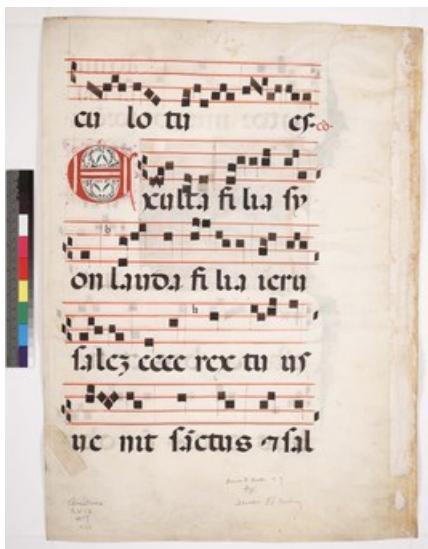 cu lo tu es.
Exulta fi lia sy
on lauda fi lia ieru
salez ecce rex tu us
ue nit sāctus ⁊ sal